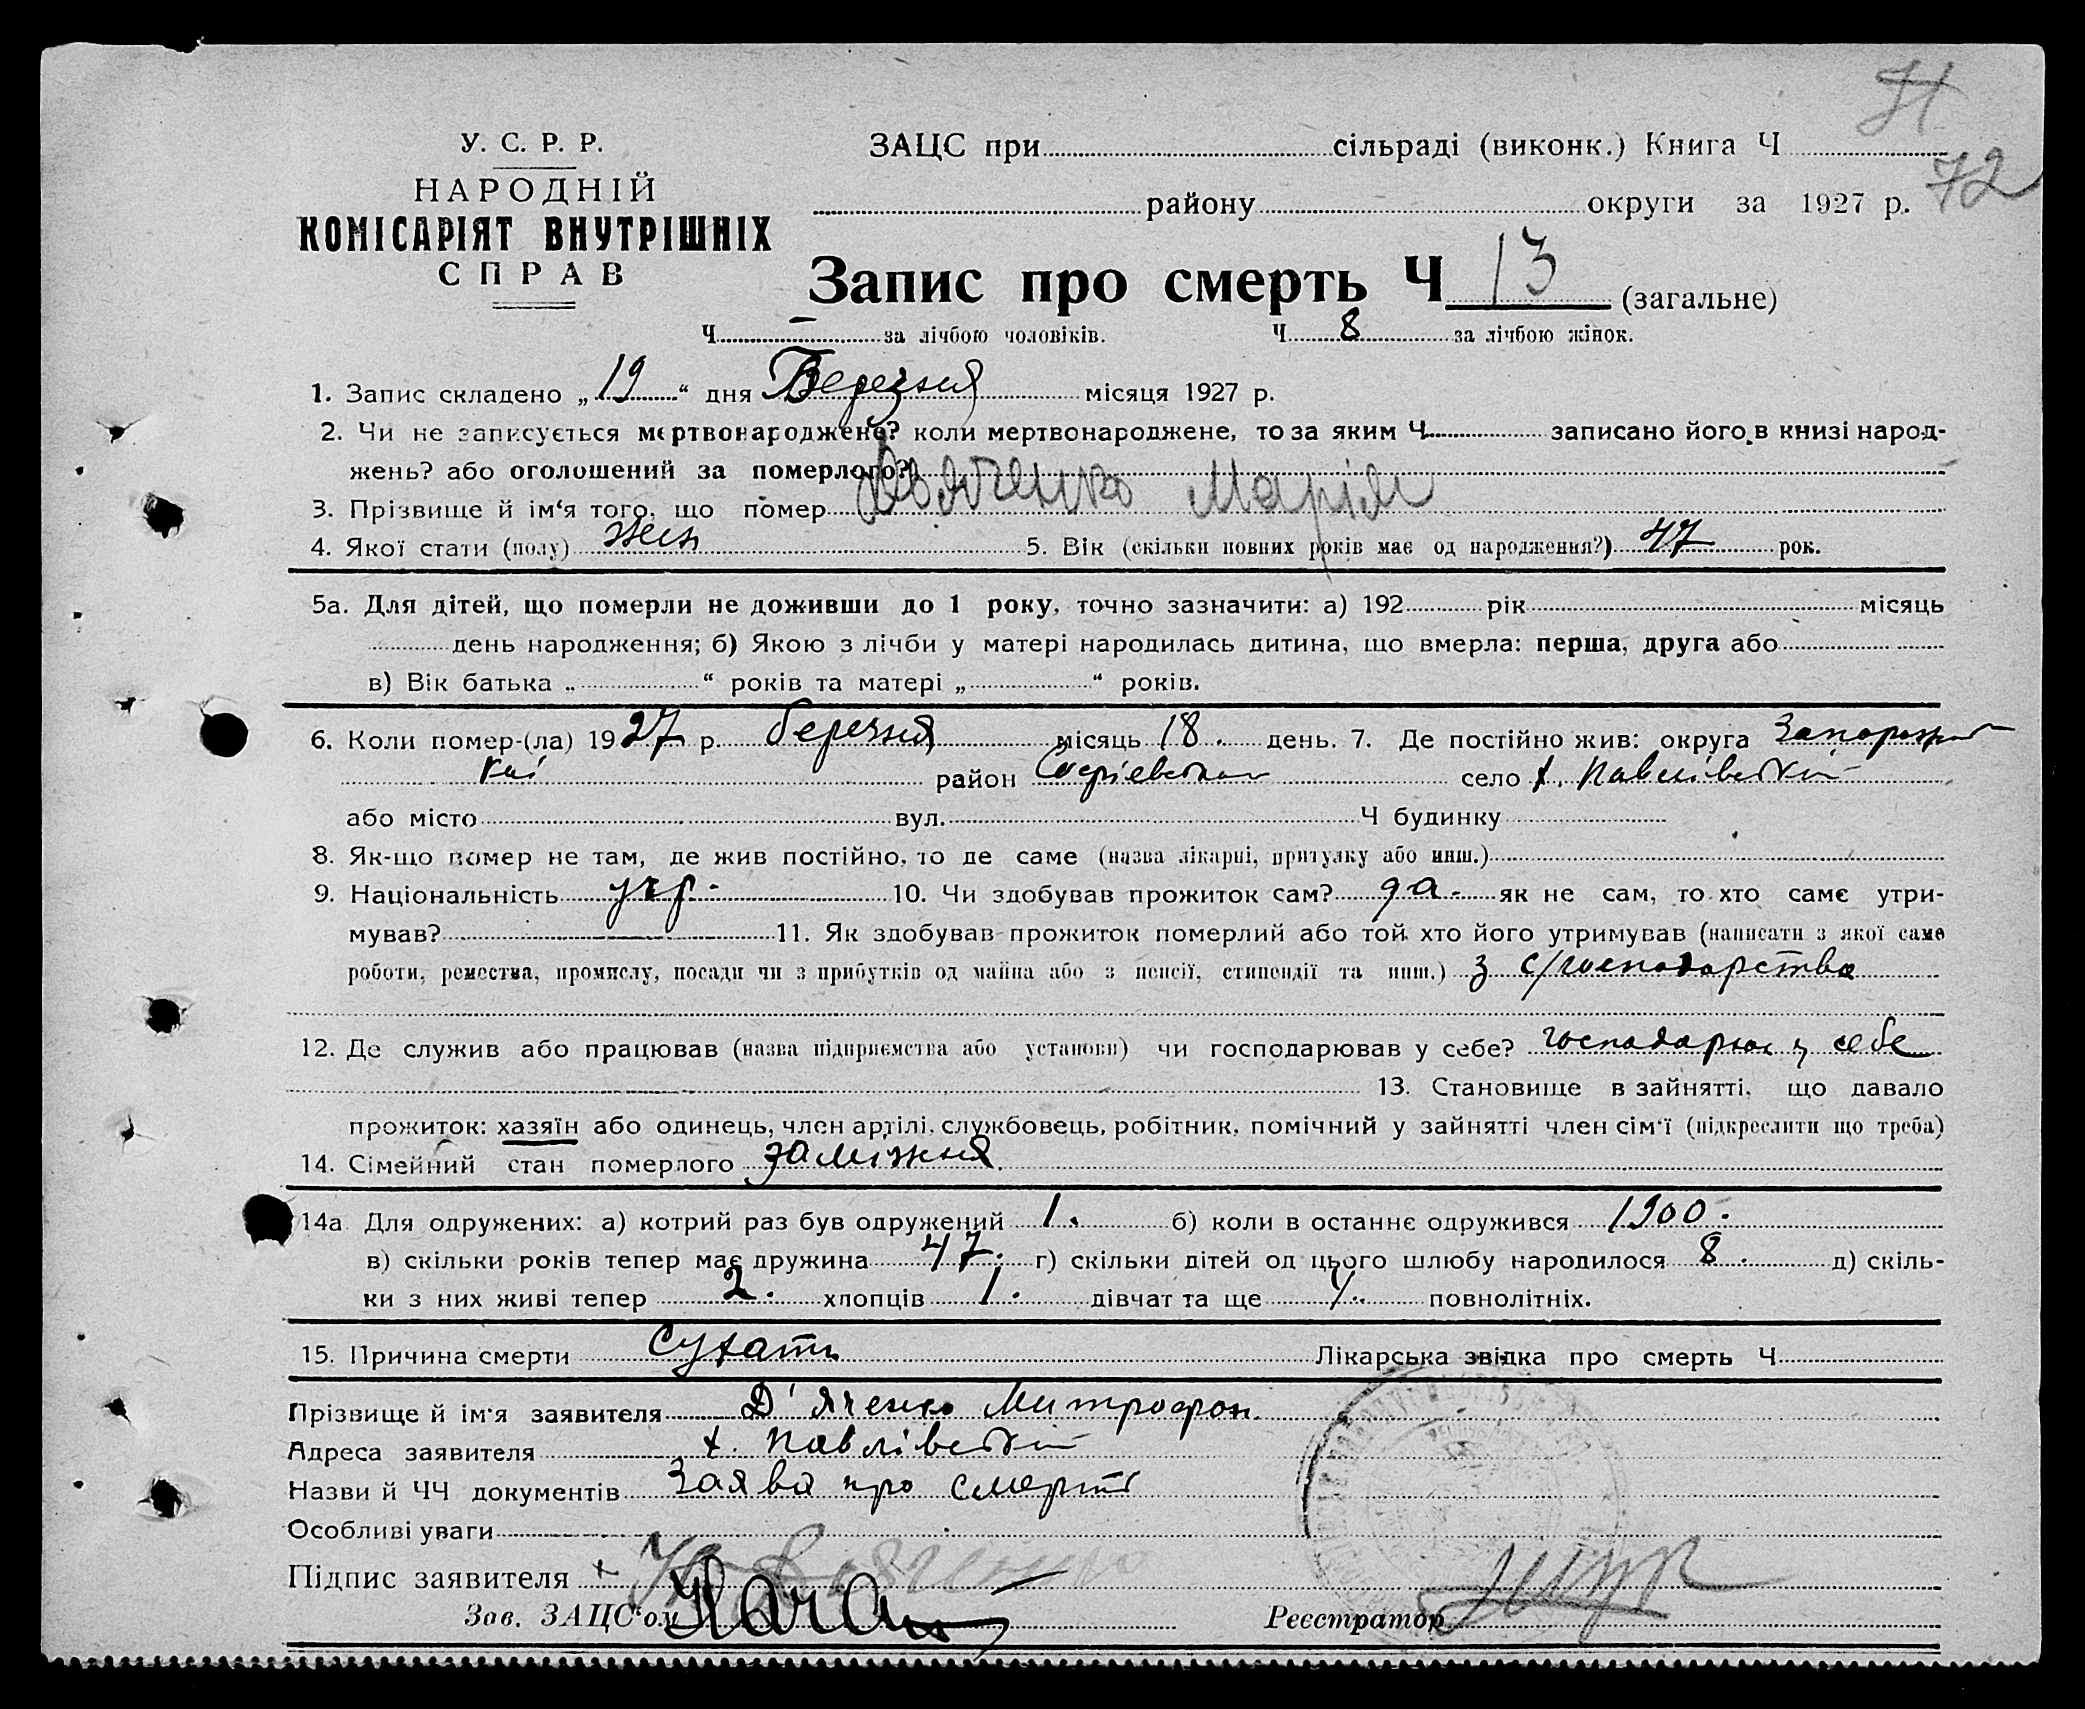 71
72
У. С. Р. Р.
НАРОДНІЙ
КОМІСАРІЯТ ВНУТРІШНІХ
СПРАВ
ЗАЦС при сільраді (виконк.) Книга Ч
району округи за 1927 р.
Запис про смерть Ч 13 (загальне)
Ч – за лічбою чоловіків. Ч 8 за лічбою жінок.
1. Запис складено „19“ дня Березня місяця 1927 р.
2. Чи не записується мертвонароджене? коли мертвонароджене, то за яким Ч записано його в книзі народ-
жень? або оголошений за померлого?
3. Прізвище й ім‘я того, що помер Дьяченко Марія
4. Якої стати (полу) жін 5. Вік (скільки повних років має од народження?) 47 рок.
5а. Для дітей, що померли не доживши до 1 року, точно зазначити: а) 192 рік місяць
день народження; б) Якою з лічби у матері народилась дитина, що вмерла: перша, друга або
в) Вік батька „ “ років та матері „ “ років.
6. Коли помер-(ла) 1927 р. березня місяць 18. день. 7. Де постійно жив: округа Запорозь-
кої район Софіевський село х. Павлівський
або місто вул. Ч будинку
8. Як-що помер не там, де жив постійно, то де саме (назва лікарні, притулку або инш.)
9. Національність укр. 10. Чи здобував прожиток сам? да. як не сам, то хто саме утри-
мував? 11. Як здобував прожиток померлий або той хто його утримував (написати з якої саме
роботи, ремества, промислу, посади чи з прибутків од майна або з пенсії, стипендії та инш.) з с/господарства
12. Де служив або працював (назва підприємства або установи) чи господарював у себе? господарює у себе
13. Становище в зайнятті, що давало
прожиток: хазяїн або одинець, член артілі, службовець, робітник, помічний у зайнятті член сім‘ї (підкреслити що треба)
14. Сімейний стан померлого заміжня.
14а Для одружених: а) котрий раз був одружений 1. б) коли в останнє одружився 1900.
в) скільки років тепер має дружина 47. г) скільки дітей од цього шлюбу народилося 8. д) скіль-
ки з них живі тепер 2. хлопців 1. дівчат та ще повнолітніх.
15. Причина смерти Сухати Лікарська звідка про смерть Ч
Прізвище й ім‘я заявителя Д'яченко Митрофан.
Адреса заявителя х. Павлівський
Назви й ЧЧ документів Заява про смерть
Особливі уваги
Підпис заявителя + Дяченко
Зав. ЗАЦС‘ом Реєстратор